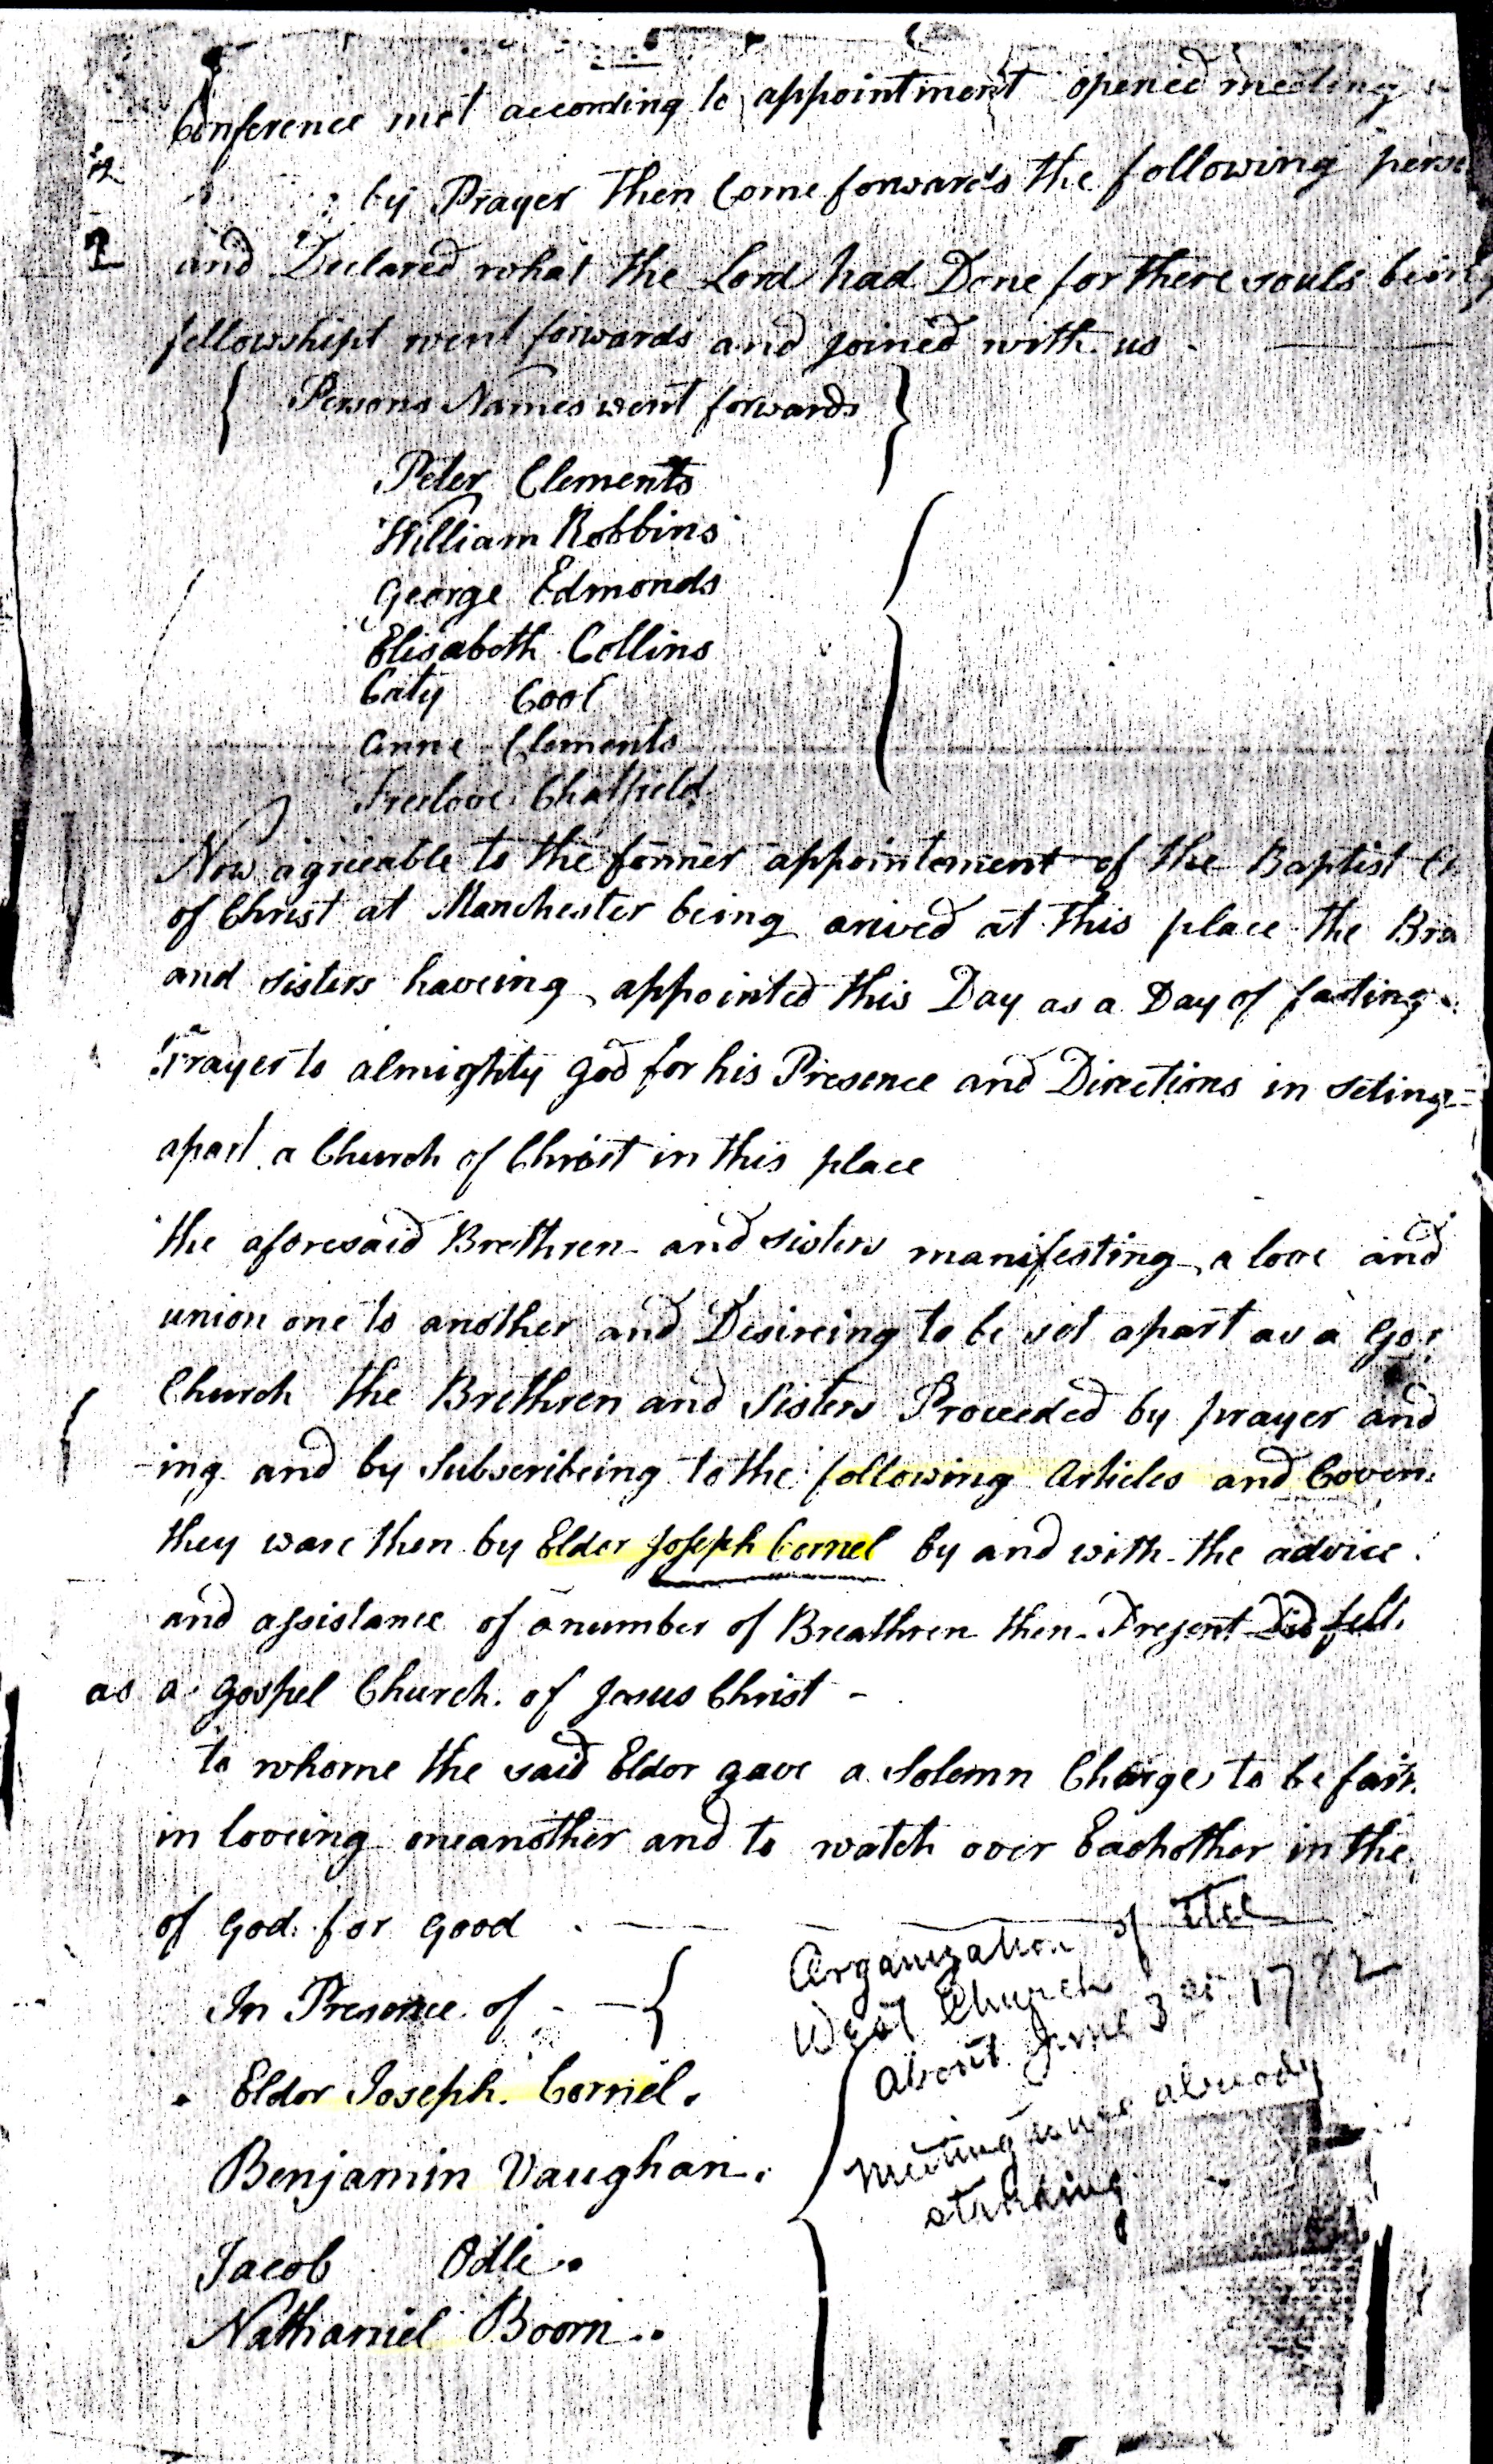 Conference met according to appointment opened meeting
by Prayer then Come forwards the following perso
and Declared what the Lord had Done for there souls being
fellowshipt went forwards and joined with us -
Persons Names went forwards
Peter Clements
William Robbins
George Edmonds
Elisabeth Collins
Caty Cool
Anne Clements
Freelove Chatfield
Now agreeable to the former appointement of the Baptist Ch
of Christ at Manchester being arived at this place the Bre
and sisters haveing appointed this Day as a Day of fasting
Prayer to almighty god for his Presence and Directions in seting
apart a Church of Christ in this place
the aforesaid Brethren and sisters manifesting a love and
union one to another and Desireing to be set apart as a gos
Church the Brethren and Sisters Proceeded by prayer and
-ing and by Subscribeing to the following Articles and Coven
they ware then by Eldor Joseph Cornel by and with the advice
and assistance of a number of Breathren then Present Did fell
as a gospel Church of Jesus Christ -
to whome the said Eldor gave a Solemn Charge to be faith
in loveing oneanother and to watch over Eachother in the
of god for good
In Presence of - -
Eldor Joseph Cornel.
Benjamin Vaughan.
Jacob Odle.
Nathaniel Boorn..
Organization of the
West Church
About June 3 1782
Meeting house already
standing